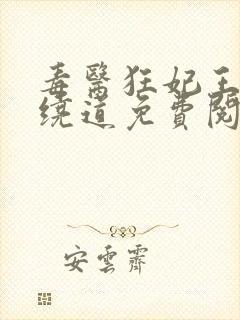 毒醫狂妃王
繞道免費閱
安雲霽